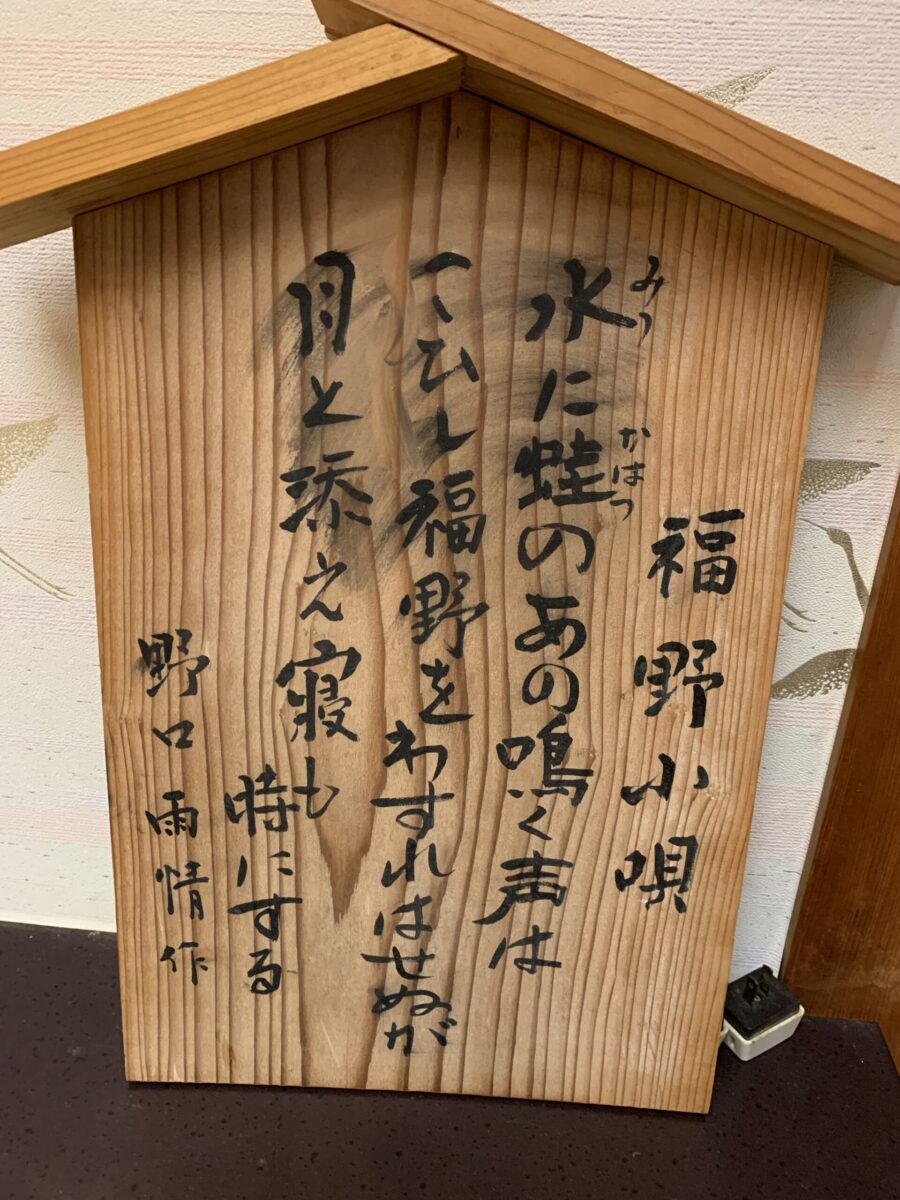 福野小唄
みつ かはつ
水に蛙のあの鳴く声は
こひし福野をわすれはせぬが
月と添え寝も
時にする
野口雨情作